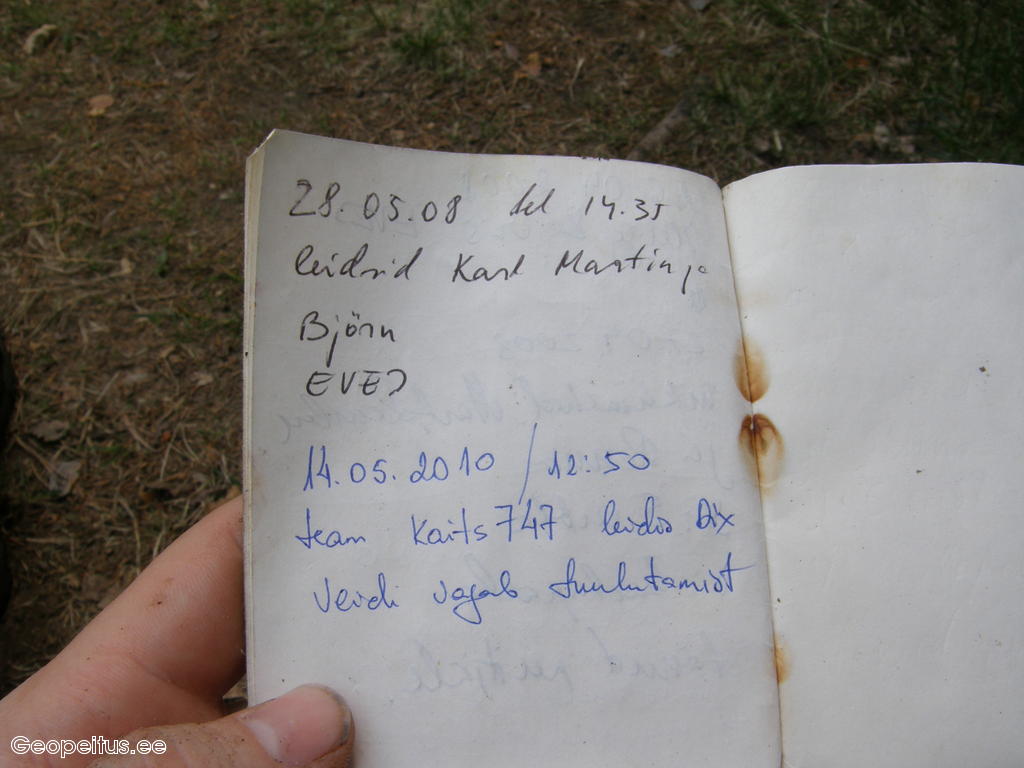 28.05.08 kel 14.35
leidsid Karl Martin ja
Björn
EVEJ
14.05.2010 / 12:50
team Kaits747 leidis
Veidi vajab tuulutamist
Geopeitus.ee